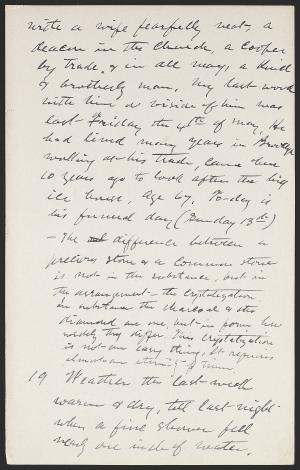 with a wife fearfully neat, a
deacon in the Church, a Cooper
by trade, & in all ways, a kind
brotherly man. My last work
with him & vision of him was
last Friday the 4th of May, He
had lived many years in Brooklyn
working at his trade, came here
10 years ago to look after the big
ice house, age 67. To-day is
his funeral day (Sunday 13th)
— The difference between a
precious stone & a common stone
is not in the substance, but in
the arrangement — the crystalization.
In substance the charcoal & the
diamond are one, but in form how
widely they differ. This crystalization
is not an easy thing, It requires
almost an eternity of time.
19 Weather the last week
warm & dry, till last night
when a fine shower fell
nearly one inch of water.